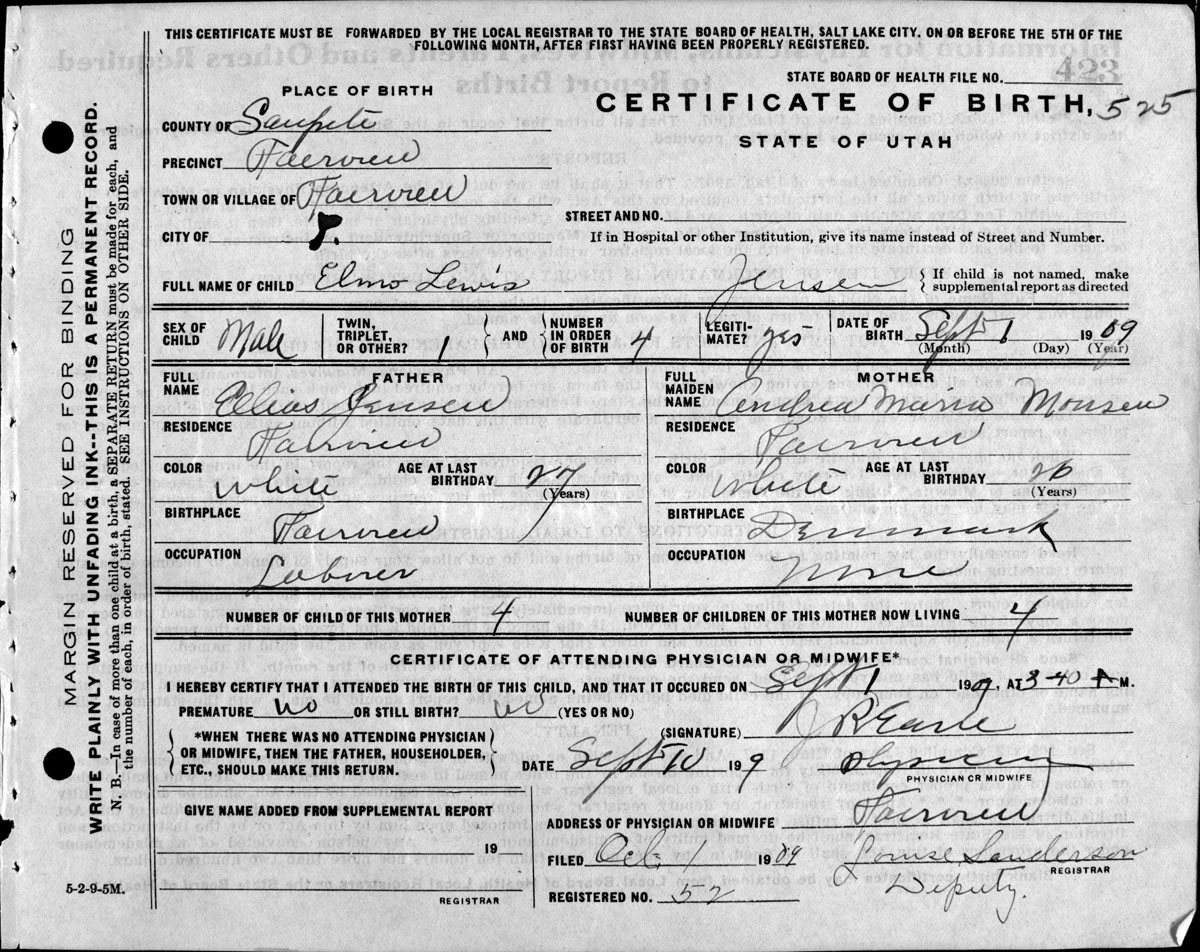 THIS CERTIFICATE MUST BE FORWARDED BY THE LOCAL REGISTRAR TO THE STATE BOARD OF HEALTH, SALT LAKE CITY. ON OR BEFORE THE 5TH OF THE
FOLLOWING MONTH, AFTER FIRST HAVING BEEN PROPERLY REGISTERED.
STATE BOARD OF HEALTH FILE NO. 423
PLACE OF BIRTH
CERTIFICATE OF BIRTH, 525
STATE OF UTAH
COUNTY OF Sanpete
PRECINCT Fairview
TOWN OR VILLAGE OF Fairview
STREET AND NO.
CITY OF
If in Hospital or other Institution, give its name instead of Street and Number.
FULL NAME OF CHILD Elmo Lewis Jensen { If child is not named, make
supplemental report as directed
SEX OF CHILD Male
TWIN, TRIPLET, OR OTHER? 1 } AND { NUMBER IN ORDER OF BIRTH 4
LEGITIMATE? yes
DATE OF BIRTH Sept 1 1909
(Month) (Day) (Year)
FATHER
FULL NAME Elias Jensen
RESIDENCE Fairview
COLOR White AGE AT LAST BIRTHDAY 27
(Years)
BIRTHPLACE Fairview
OCCUPATION Laborer
MOTHER
FULL MAIDEN NAME Andrea Maria Monsen
RESIDENCE Fairview
COLOR White AGE AT LAST BIRTHDAY 26
(Years)
BIRTHPLACE Denmark
OCCUPATION None
NUMBER OF CHILD OF THIS MOTHER 4 NUMBER OF CHILDREN OF THIS MOTHER NOW LIVING 4
CERTIFICATE OF ATTENDING PHYSICIAN OR MIDWIFE*
I HEREBY CERTIFY THAT I ATTENDED THE BIRTH OF THIS CHILD, AND THAT IT OCCURED ON Sept 1 1909, AT 3-40 A M.
PREMATURE no OR STILL BIRTH? no (YES OR NO)
(SIGNATURE) J R Earle
{ *WHEN THERE WAS NO ATTENDING PHYSICIAN
OR MIDWIFE, THEN THE FATHER, HOUSEHOLDER,
ETC., SHOULD MAKE THIS RETURN. }
DATE Sept 10 199 Physician
PHYSICIAN OR MIDWIFE
GIVE NAME ADDED FROM SUPPLEMENTAL REPORT
19
REGISTRAR
ADDRESS OF PHYSICIAN OR MIDWIFE Fairview
FILED Oct 1 1909 Louise Sanderson
REGISTRAR
REGISTERED NO. 52 Deputy.
5-2-9-5M.
MARGIN RESERVED FOR BINDING
WRITE PLAINLY WITH UNFADING INK--THIS IS A PERMANENT RECORD.
N. B.—In case of more than one child at a birth, a SEPARATE RETURN must be made for each, and
the number of each, in order of birth, stated. SEE INSTRUCTIONS ON OTHER SIDE.